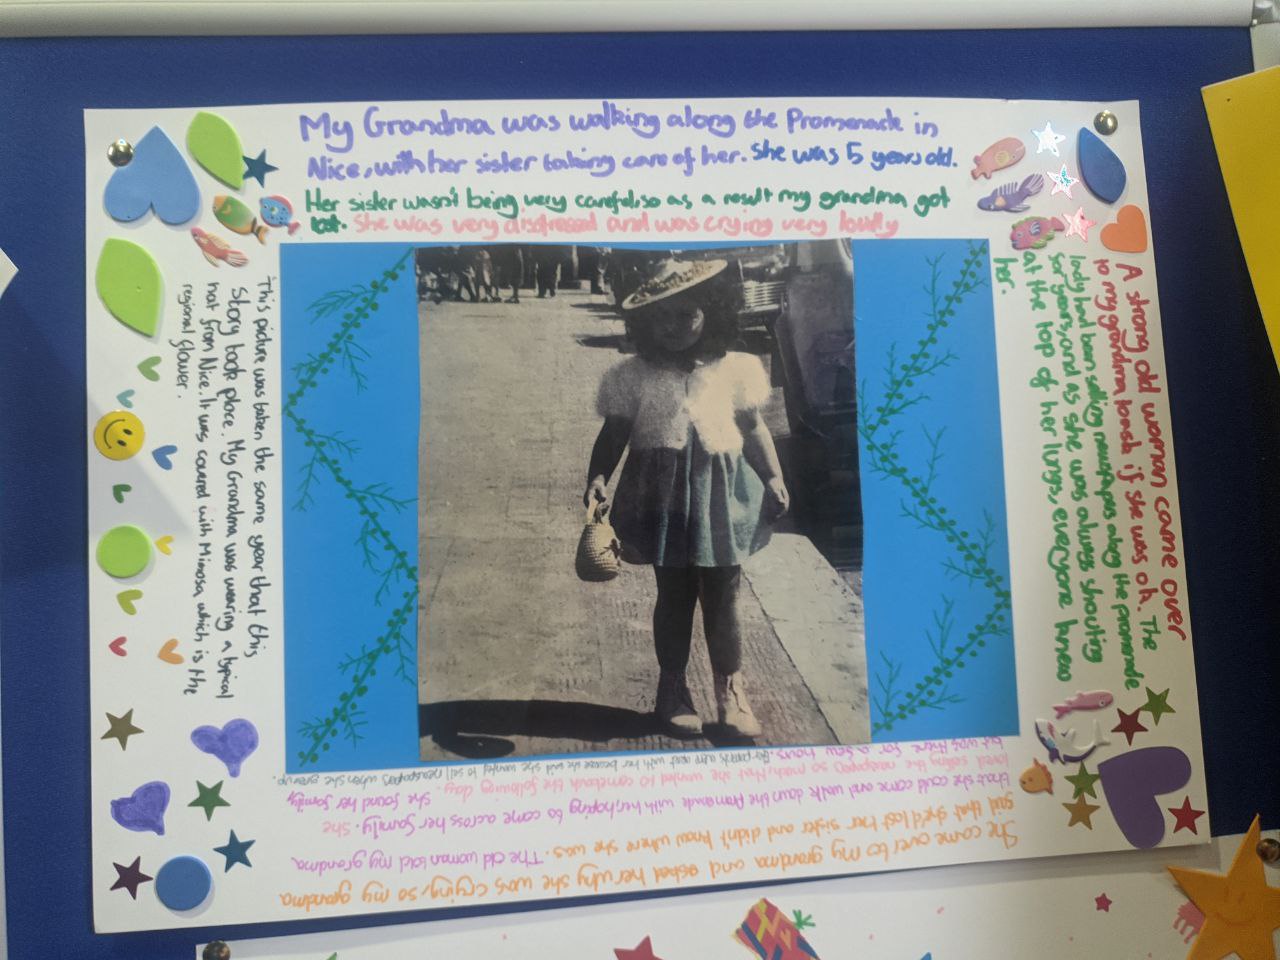 My Grandma was walking along the Promenade in
Nice, with her sister taking care of her. She was 5 years old.
Her sister wasn't being very careful, so as a result my grandma got
lost. She was very distressed and was crying very loudly
A strong old woman came over
to my grandma to ask if she was ok. The
lady had been selling newspapers along the promenade
for years, and as she was always shouting
at the top of her lungs, everyone knew
her.
She came over to my grandma and asked her why she was crying, so my grandma
said that she'd lost her sister and didn't know where she was. The old woman told my grandma
that she could come and walk down the Promenade with her, hoping to come across her family. She
loved selling the newspapers so much, that she wanted to comeback the following day. She found her family
but was there for a few hours. Her parents were mad with her because she said she wanted to sell newspapers when she grew up.
This picture was taken the same year that this
story took place. My Grandma was wearing a typical
hat from Nice. It was covered with Mimosa, which is the
regional flower.